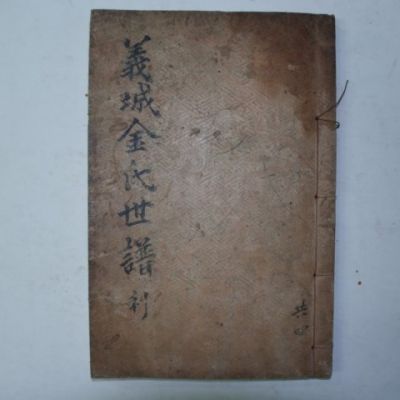 義城金氏世譜
共四